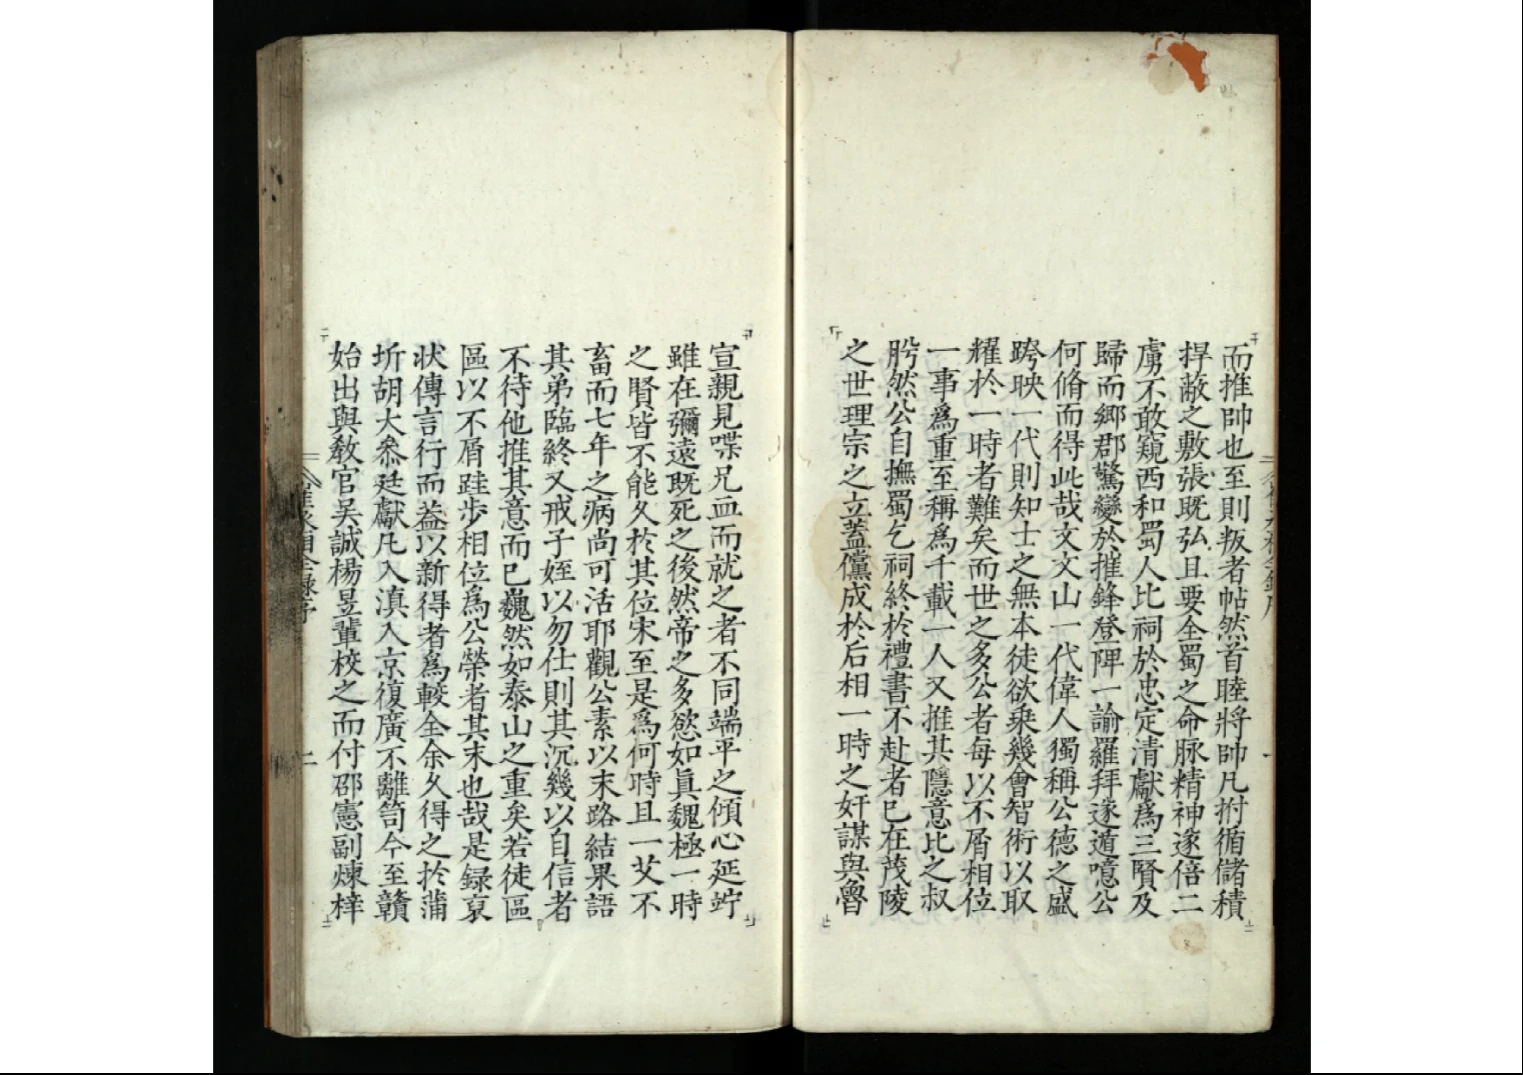 而推帥也至則叛者帖然首睦將帥凡拊循儲積
捍蔽之敷張既弘且要全蜀之命脉精神遂倍二
虜不敢窺西和蜀人比祠於忠定清獻為三賢及
歸而鄉郡驚變於摧鋒登陴一諭羅拜遂遁噫公
何脩而得此哉文文山一代偉人獨稱公德之盛
跨映一代則知士之無本徒欲乘幾會智術以取
耀於一時者難矣而世之多公者每以不屑相位
一事爲重至稱爲千載一人又推其隱意比之叔
肹然公自撫蜀乞祠終於禮書不赴者已在茂陵
之世理宗之立蓋儻成於后相一時之奸謀與魯
宣親見喋兄血而就之者不同端平之傾心延竚
雖在彌遠既死之後然帝之多慾如眞魏極一時
之賢皆不能久於其位宋至是爲何時且一艾不
畜而七年之病尚可活耶觀公素以末路結果語
其弟臨終又戒子姪以勿仕則其沉幾以自信者
不待他推其意而已巍然如泰山之重矣若徒區
區以不屑跬步相位爲公榮者其末也哉是録裒
狀傳言行而益以新得者爲較全余久得之於蒲
圻胡大叅廷獻凡入滇入京復廣不離笥今至贛
始出與教官吴誠楊昱輩校之而付邵憲副煉梓
二